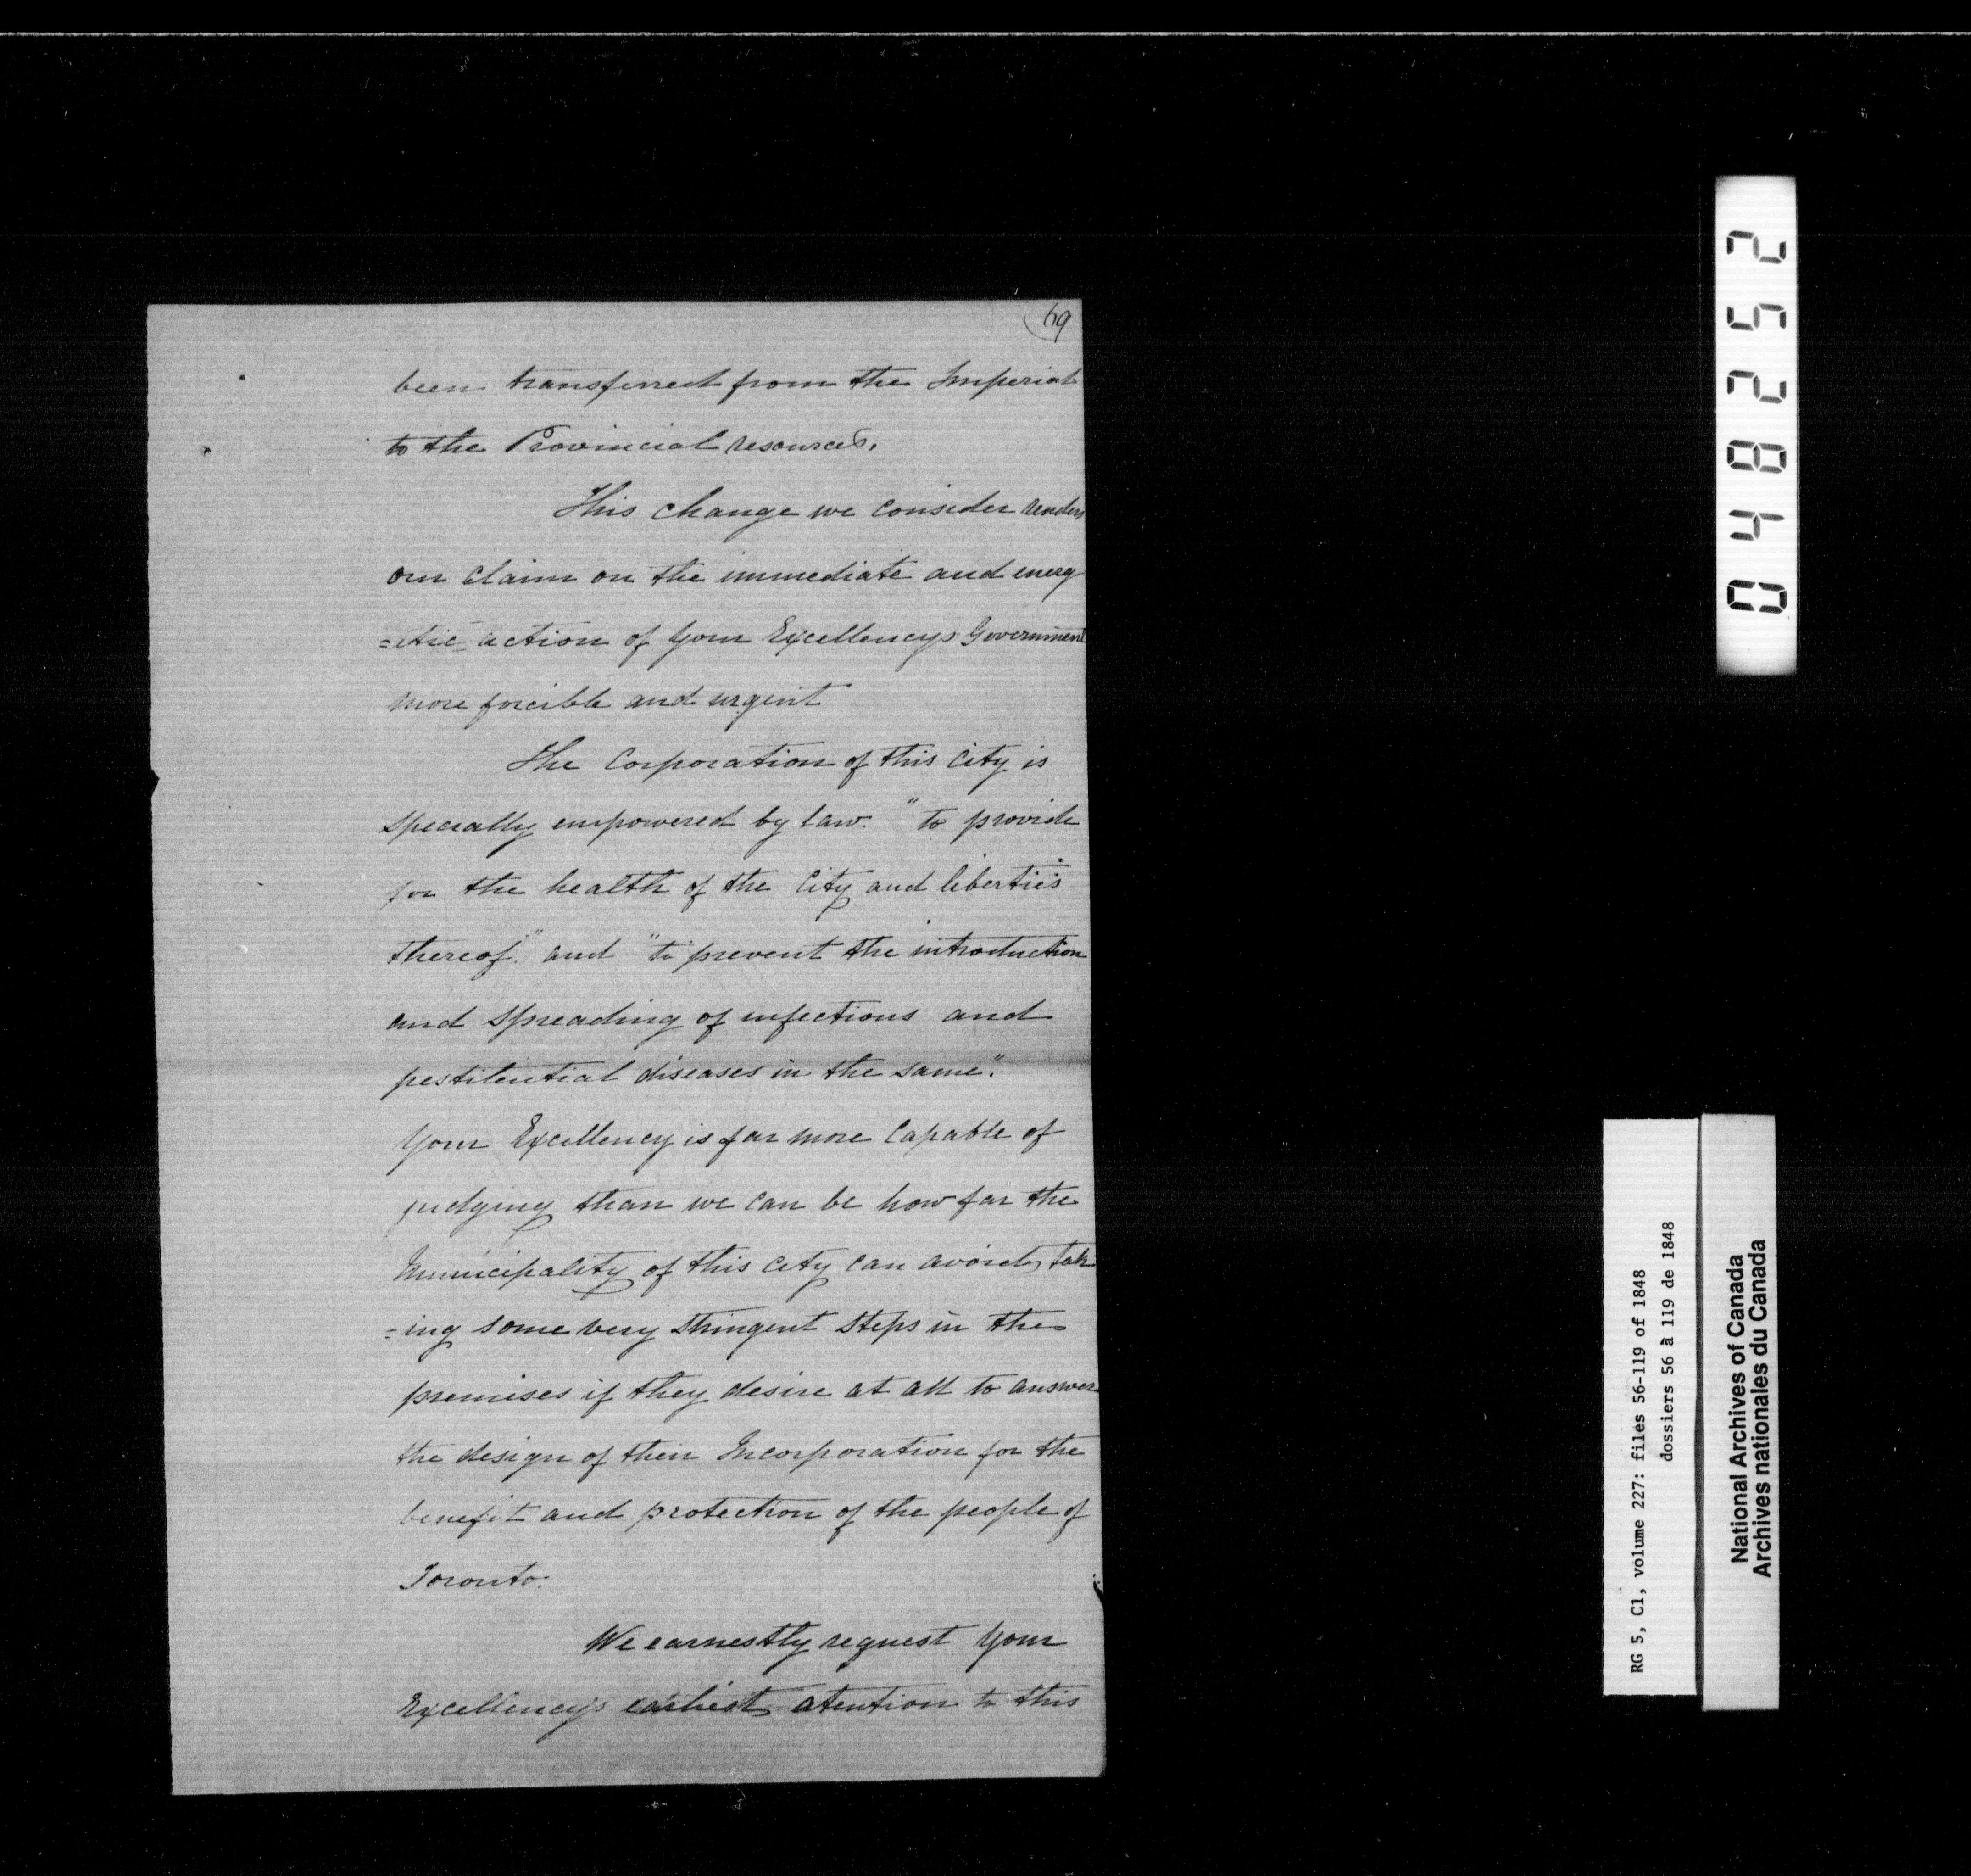 69
been transferred from the Imperial
to the Provincial resources.
This change we consider renders
our claim on the immediate and energ
=etic action of Your Excellencys Government
more forcible and urgent
The Corporation of this City is
specially empowered by law. "to provide
for the health of the City and liberties
thereof." and "to prevent the introduction
and spreading of infectious and
pestilential diseases in the same."
Your Excellency is far more Capable of
judging than we can be how far the
Municipality of this City can avoid, tak
=ing some very stringent steps in the
premises if they desire at all to answer
the design of their Incorporation for the
benefit and protection of the people of
Toronto.
We earnestly request Your
Excellency's earliest atention to this
048252
RG 5, C1, volume 227: files 56-119 of 1848
dossiers 56 à 119 de 1848
National Archives of Canada
Archives nationales du Canada